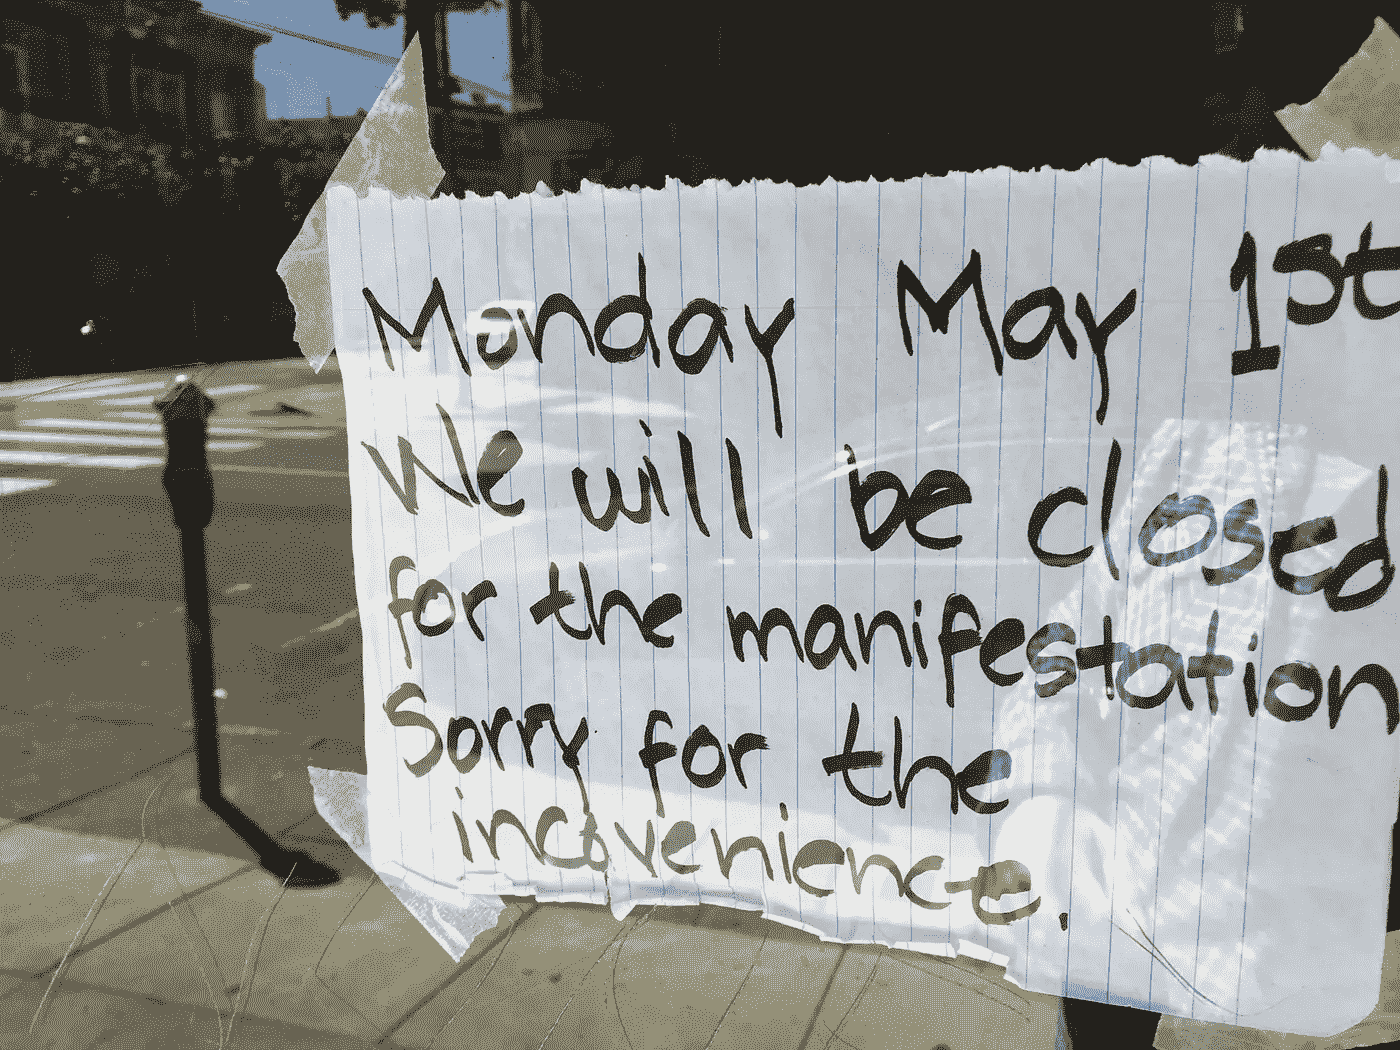 Monday May 1st
We will be closed
for the manifestation
Sorry for the
incovenience.